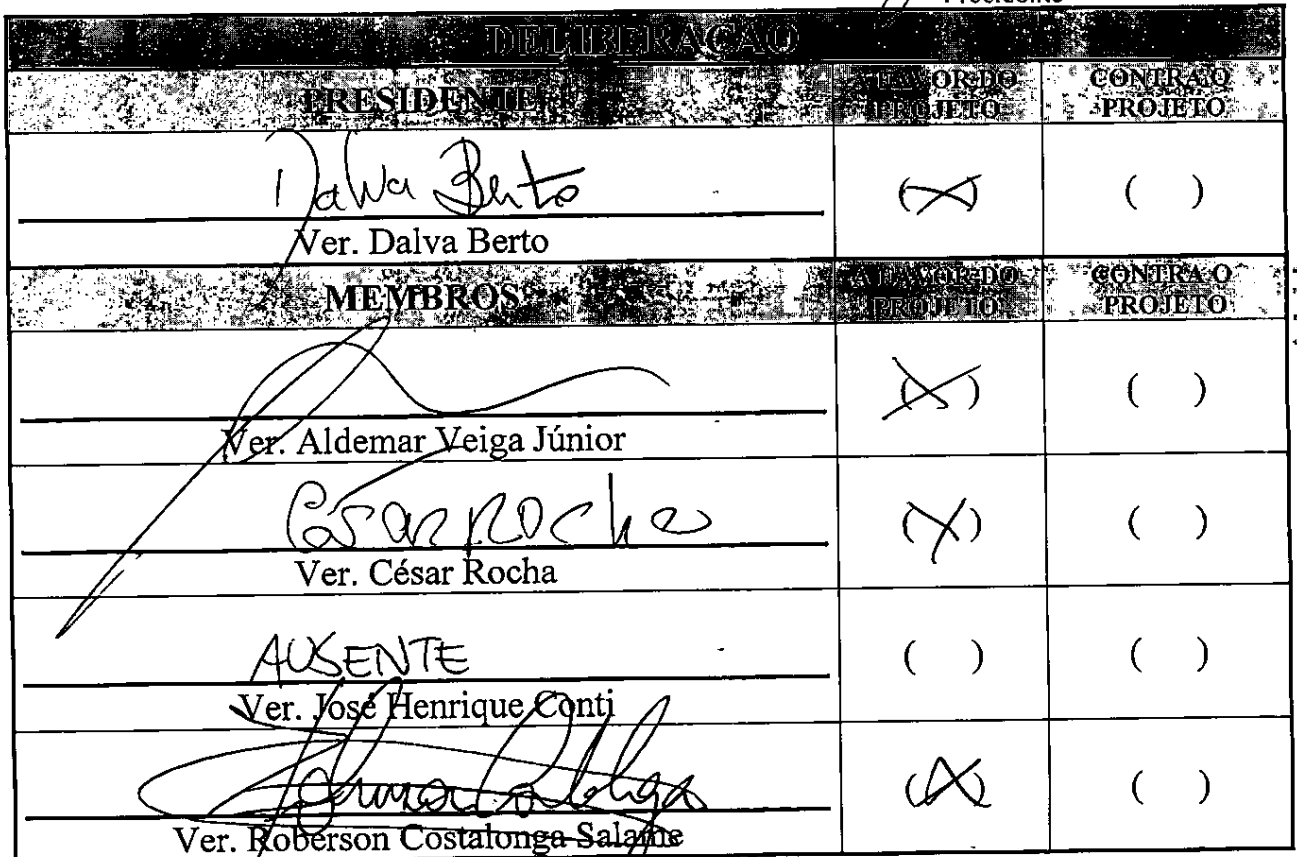 Presidente
DELIBERAÇÃO
PRESIDENTE A FAVOR DO PROJETO CONTRA O PROJETO
Dalva Berto (X) ( )
Ver. Dalva Berto
MEMBROS A FAVOR DO PROJETO CONTRA O PROJETO
(X) ( )
Ver. Aldemar Veiga Júnior
César Rocha (X) ( )
Ver. César Rocha
AUSENTE ( ) ( )
Ver. José Henrique Conti
(X) ( )
Ver. Roberson Costalonga Salame